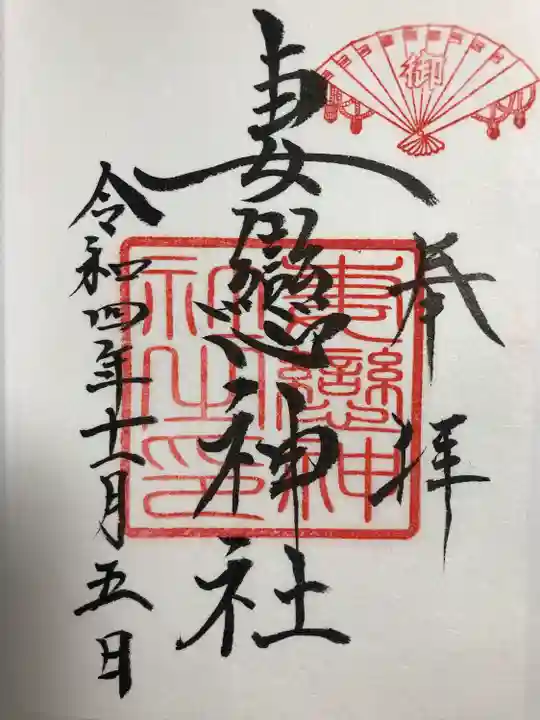 御
奉拝
妻戀神社
妻戀神社之印
令和四年十一月五日